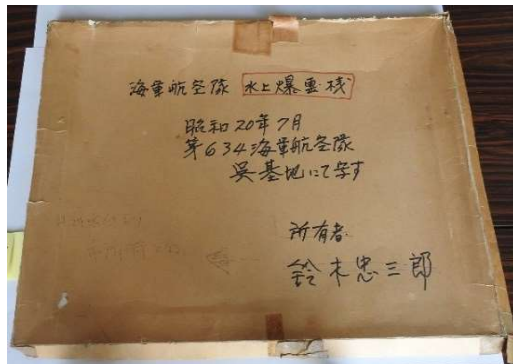 海軍航空隊 水上爆雲機
昭和20年7月
第634海軍航空隊
呉基地にて写す
所有者
鈴木忠三郎